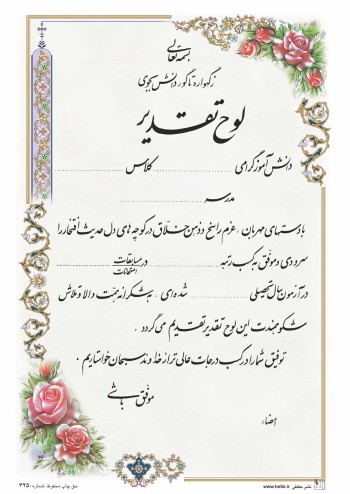 بسمه تعالی
ز گهواره تا گور دانش بجوی
لوح تقدیر
دانش آموز گرامی ........ کلاس ........
مدرسه ........
با دستهای مهربان ، عزم راسخ و ذهن خلاق در کوچه های دل حدیث افتخار را
سرودی و موفق به کسب رتبه ........ در مسابقات
امتحانات
در آزمون سال تحصیلی ........ شده ای ، به شکرانه همّت والا و تلاش
شکوهمندت این لوح تقدیر تقدیم می گردد .
توفیق شما را در کسب درجات عالی تر از خداوند سبحان خواستاریم .
موفق باشی
امضاء
حق چاپ محفوظ شماره: ۳۲۵
نشر حفظی www.hefzi.ir